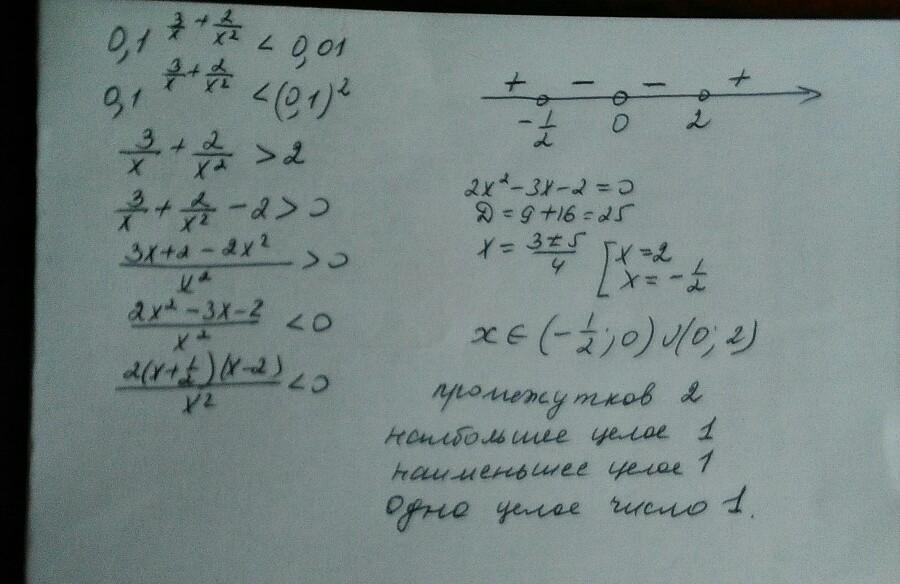 0,1^(3/x + 2/x²) < 0,01
0,1^(3/x + 2/x²) < (0,1)²
3/x + 2/x² > 2
3/x + 2/x² - 2 > 0
(3x+2-2x²)/x² > 0
(2x²-3x-2)/x² < 0
2(x+1/2)(x-2)/x² < 0
+ - - +
-1/2 0 2
2x²-3x-2=0
D=9+16=25
x = (3±5)/4 [x=2
x=-1/2
x ∈ (-1/2; 0) ∪ (0; 2)
промежутков 2
наибольшее целое 1
наименьшее целое 1
Одно целое число 1.